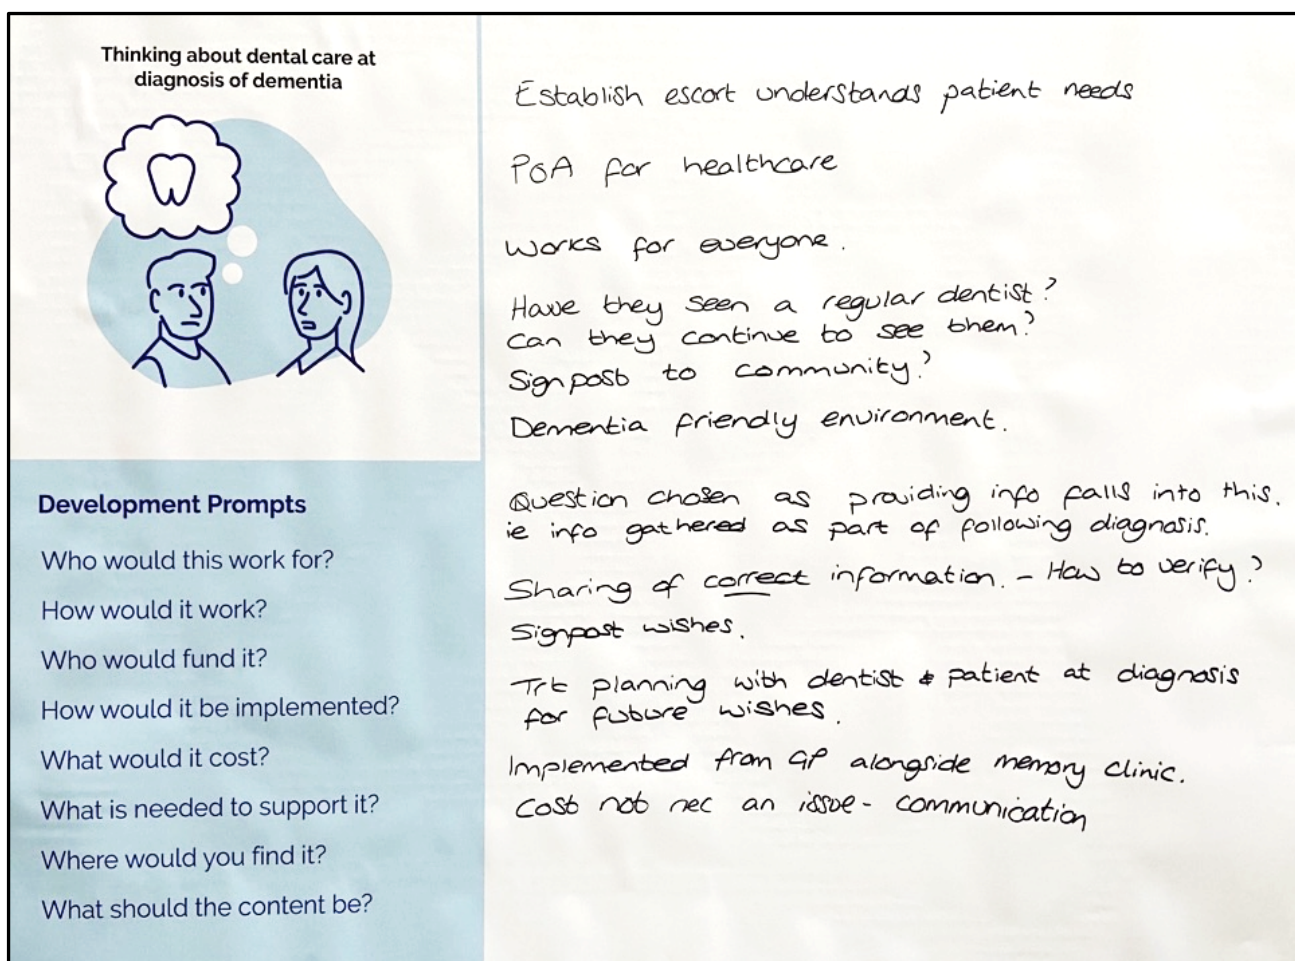 Thinking about dental care at
diagnosis of dementia
Development Prompts
Who would this work for?
How would it work?
Who would fund it?
How would it be implemented?
What would it cost?
What is needed to support it?
Where would you find it?
What should the content be?
Establish escort understands patient needs
PoA for healthcare
Works for everyone.
Have they seen a regular dentist?
Can they continue to see them?
Signpost to community?
Dementia friendly environment.
Question chosen as providing info falls into this.
ie info gathered as part of following diagnosis.
Sharing of correct information. - How to verify?
Signpost wishes.
Trt planning with dentist & patient at diagnosis
for future wishes.
Implemented from GP alongside memory clinic.
Cost not nec an issue - communication